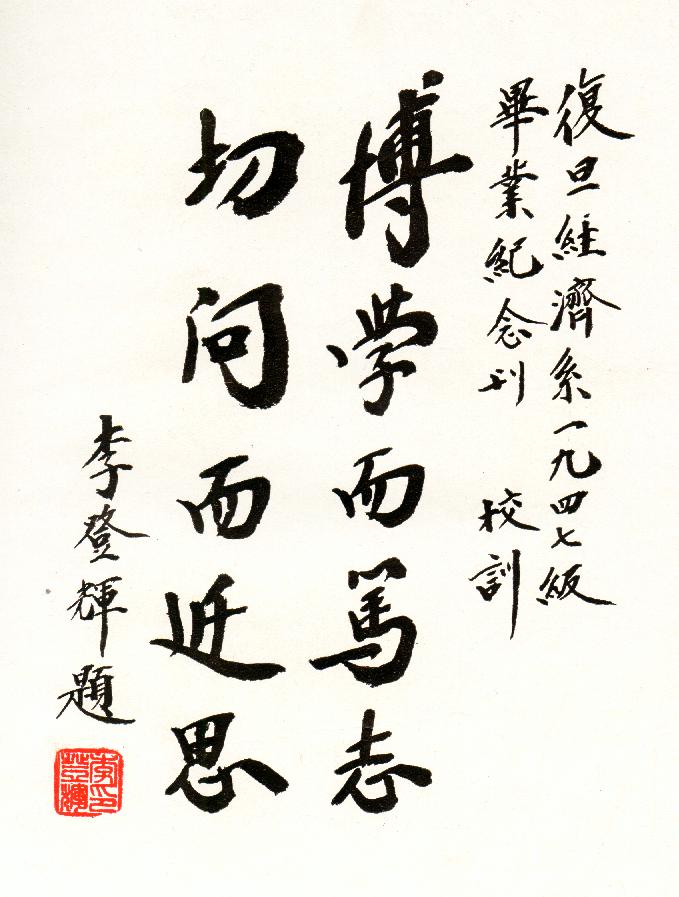 復旦經濟系一九四七級
畢業紀念刊　校訓
博學而篤志
切问而近思
李登輝題
李登輝印